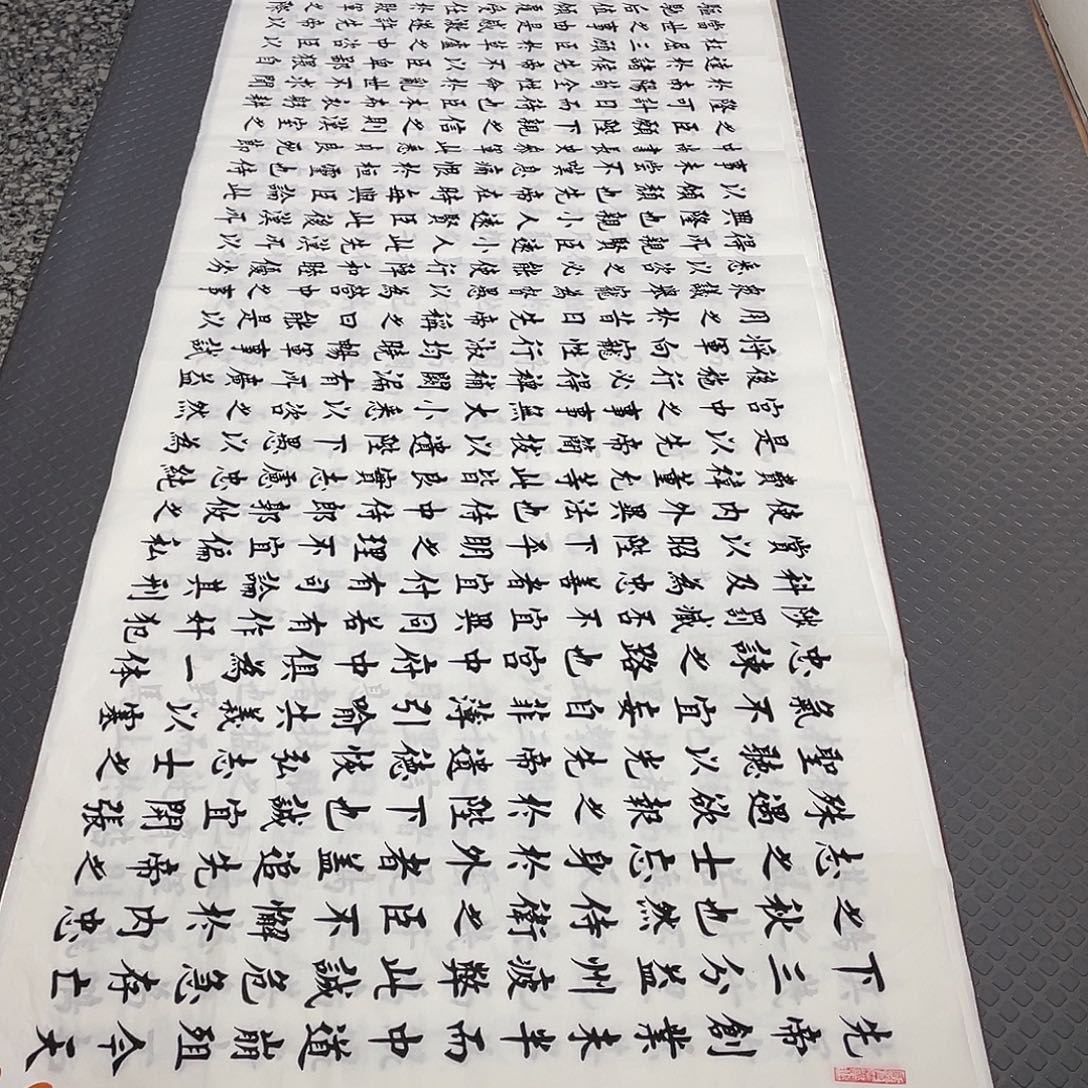 先帝創業未半而中道崩殂今天
下三分益州疲弊此誠危急存亡
之秋也然侍衛之臣不懈於內忠
志之士忘身於外者蓋追先帝之
殊遇欲報之於陛下也誠宜開張
聖聽以光先帝遺德恢弘志士之
氣不宜妄自菲薄引喻失義以塞
忠諫之路也宮中府中俱為一体
陟罰臧否不宜異同若有作奸犯
科及為忠善者宜付有司論其刑
賞以昭陛下平明之理不宜偏私
使內外異法也侍中侍郎郭攸之
費禕董允等此皆良實志慮忠純
是以先帝簡拔以遺陛下愚以為
宮中之事事無大小悉以咨之然
後施行必得裨補闕漏有所廣益
將軍向寵性行淑均曉暢軍事試
用之於昔日先帝稱之曰能是以
眾議舉寵為督愚以為營中之事
悉以咨之必能使行陣和睦優劣
得所親賢臣遠小人此先漢所以
興隆也親小人遠賢臣此後漢所
以傾頹也先帝在時每與臣論此
事未嘗不嘆息痛恨於桓靈也侍
中尚書長史參軍此悉貞良死節
之臣願陛下親之信之則漢室之
隆可計日而待也臣本布衣躬耕
於南陽苟全性命於亂世不求聞
達於諸侯先帝不以臣卑鄙猥自
枉屈三顧臣於草廬之中咨臣以
當世之事由是感激遂許先帝以
驅馳后值傾覆受任於敗軍之際